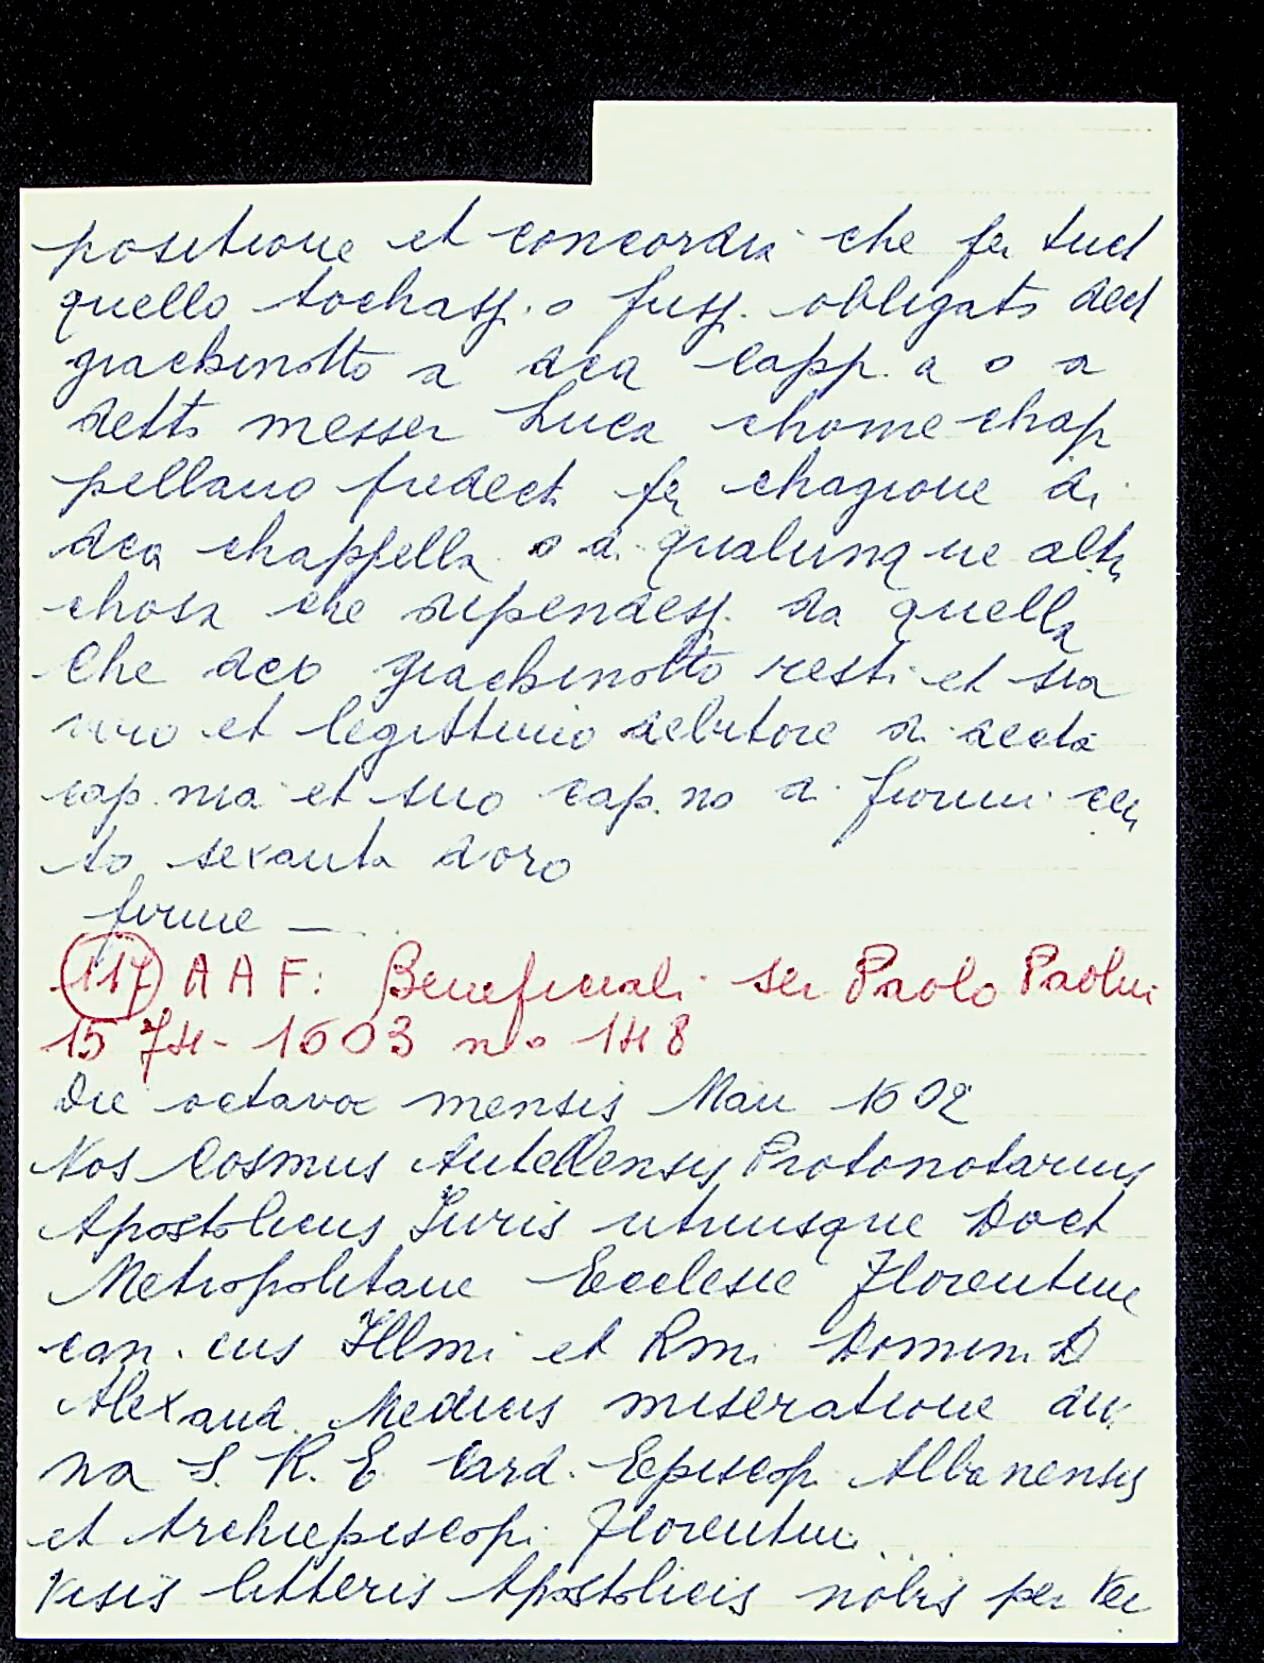 positione et concordia che per tuct
quello tochass. o fuss. obligato dect
giachinotto a dca capp. a o a
detto messer Luca chome chap
pellano predect. per chagione di
dca chappella o di qualunque altr
chosa che dipendess. da quella
Che dco giachinotto resti et sia
vero et legittimo debitore di decta
cap.nia et suo cap.no di fiorini cen
to sexanta doro
firme —
(117) A A F: Beneficiali ser Paolo Paolini
1574-1603 n.o 148
Die octavae mensis Maii 1602
Nos Cosmus Antellensis Protonotarius
Apostolicus Iuris utriusque Doct
Metropolitane Ecclesie Florentine
can.cus Illmi et Rmi Domini D
Alexand. Medicis miseratione divi
na S. R. E. Card. Episcop. Albanensis
et Archiepiscopi Florentini ...
Visis litteris Apostolicis nobis per Ve